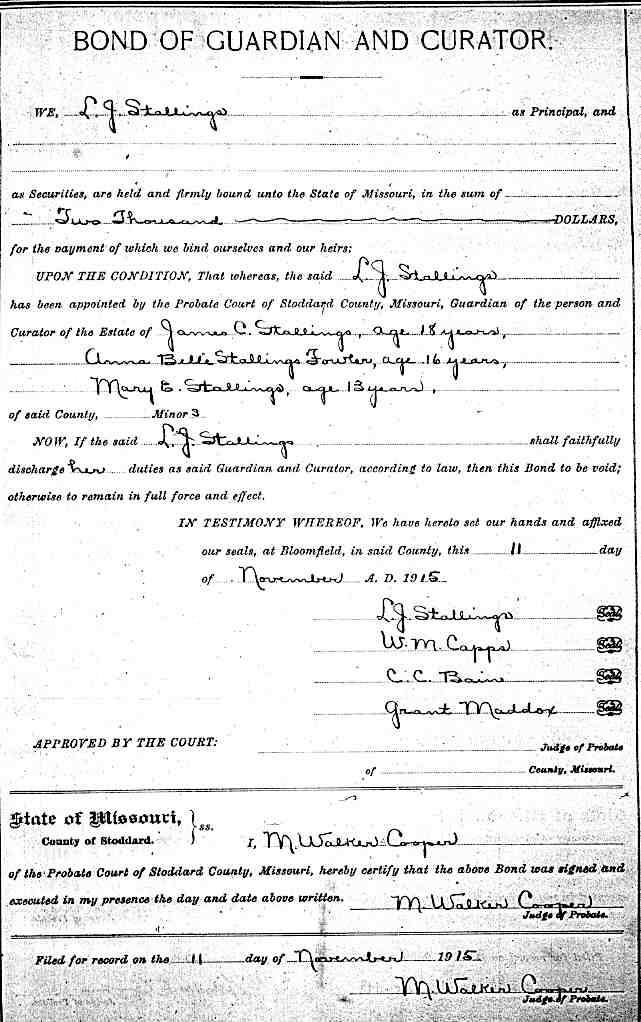 BOND OF GUARDIAN AND CURATOR.
WE, L. J. Stallings as Principal, and
as Securities, are held and firmly bound unto the State of Missouri, in the sum of
Two Thousand DOLLARS,
for the payment of which we bind ourselves and our heirs:
UPON THE CONDITION, That whereas, the said L. J. Stallings
has been appointed by the Probate Court of Stoddard County, Missouri, Guardian of the person and
Curator of the Estate of James C. Stallings, age 18 years,
Anna Belle Stallings Fowler, age 16 years,
Mary E. Stallings, age 13 years,
of said County, Minor 3
NOW, If the said L. J. Stallings shall faithfully
discharge her duties as said Guardian and Curator, according to law, then this Bond to be void;
otherwise to remain in full force and effect.
IN TESTIMONY WHEREOF, We have hereto set our hands and affixed
our seals, at Bloomfield, in said County, this 11 day
of November A. D. 1915
L. J. Stallings Seal
W. M. Capps Seal
C. C. Bain Seal
Grant Maddox Seal
APPROVED BY THE COURT:
Judge of Probate
of County, Missouri.
State of Missouri,
County of Stoddard. } ss.
I, M. Walker Cooper
of the Probate Court of Stoddard County, Missouri, hereby certify that the above Bond was signed and
executed in my presence the day and date above written. M. Walker Cooper
Judge of Probate.
Filed for record on the 11 day of November 1915
M. Walker Cooper
Judge of Probate.